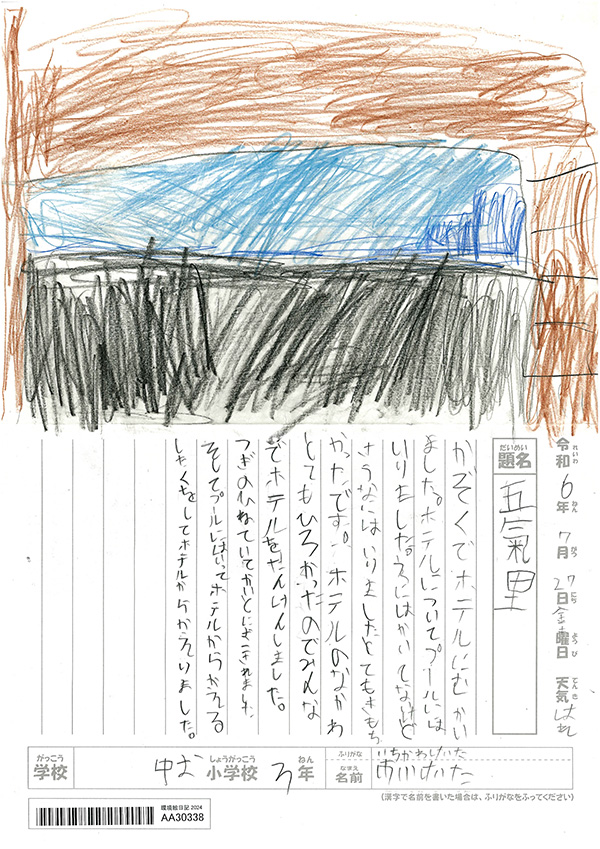 令和6年7月27日金曜日 天気はれ
れいわ ねん がつ にち ようび てんき
だいめい
題名
かぞくでホテルにむかい
ました。ホテルについてプールには
いりました。えにはかいてなけど
さうなにはいりましたとてもきもち
かったです。ホテルのなかわ
とてもひろかったのでみんな
でホテルをたんけんしました。
つぎのひねていてかいとにおこされました
そしてプールにはいってホテルからかえる
したくをしてホテルからかえりました。
がっこう しょうがっこう ねん
学校 中お小学校 3年
ふりがな いちかわけいた
なまえ
名前 市川けいた
(漢字で名前を書いた場合は、ふりがなをふってください)
環境絵日記 2024
AA30338